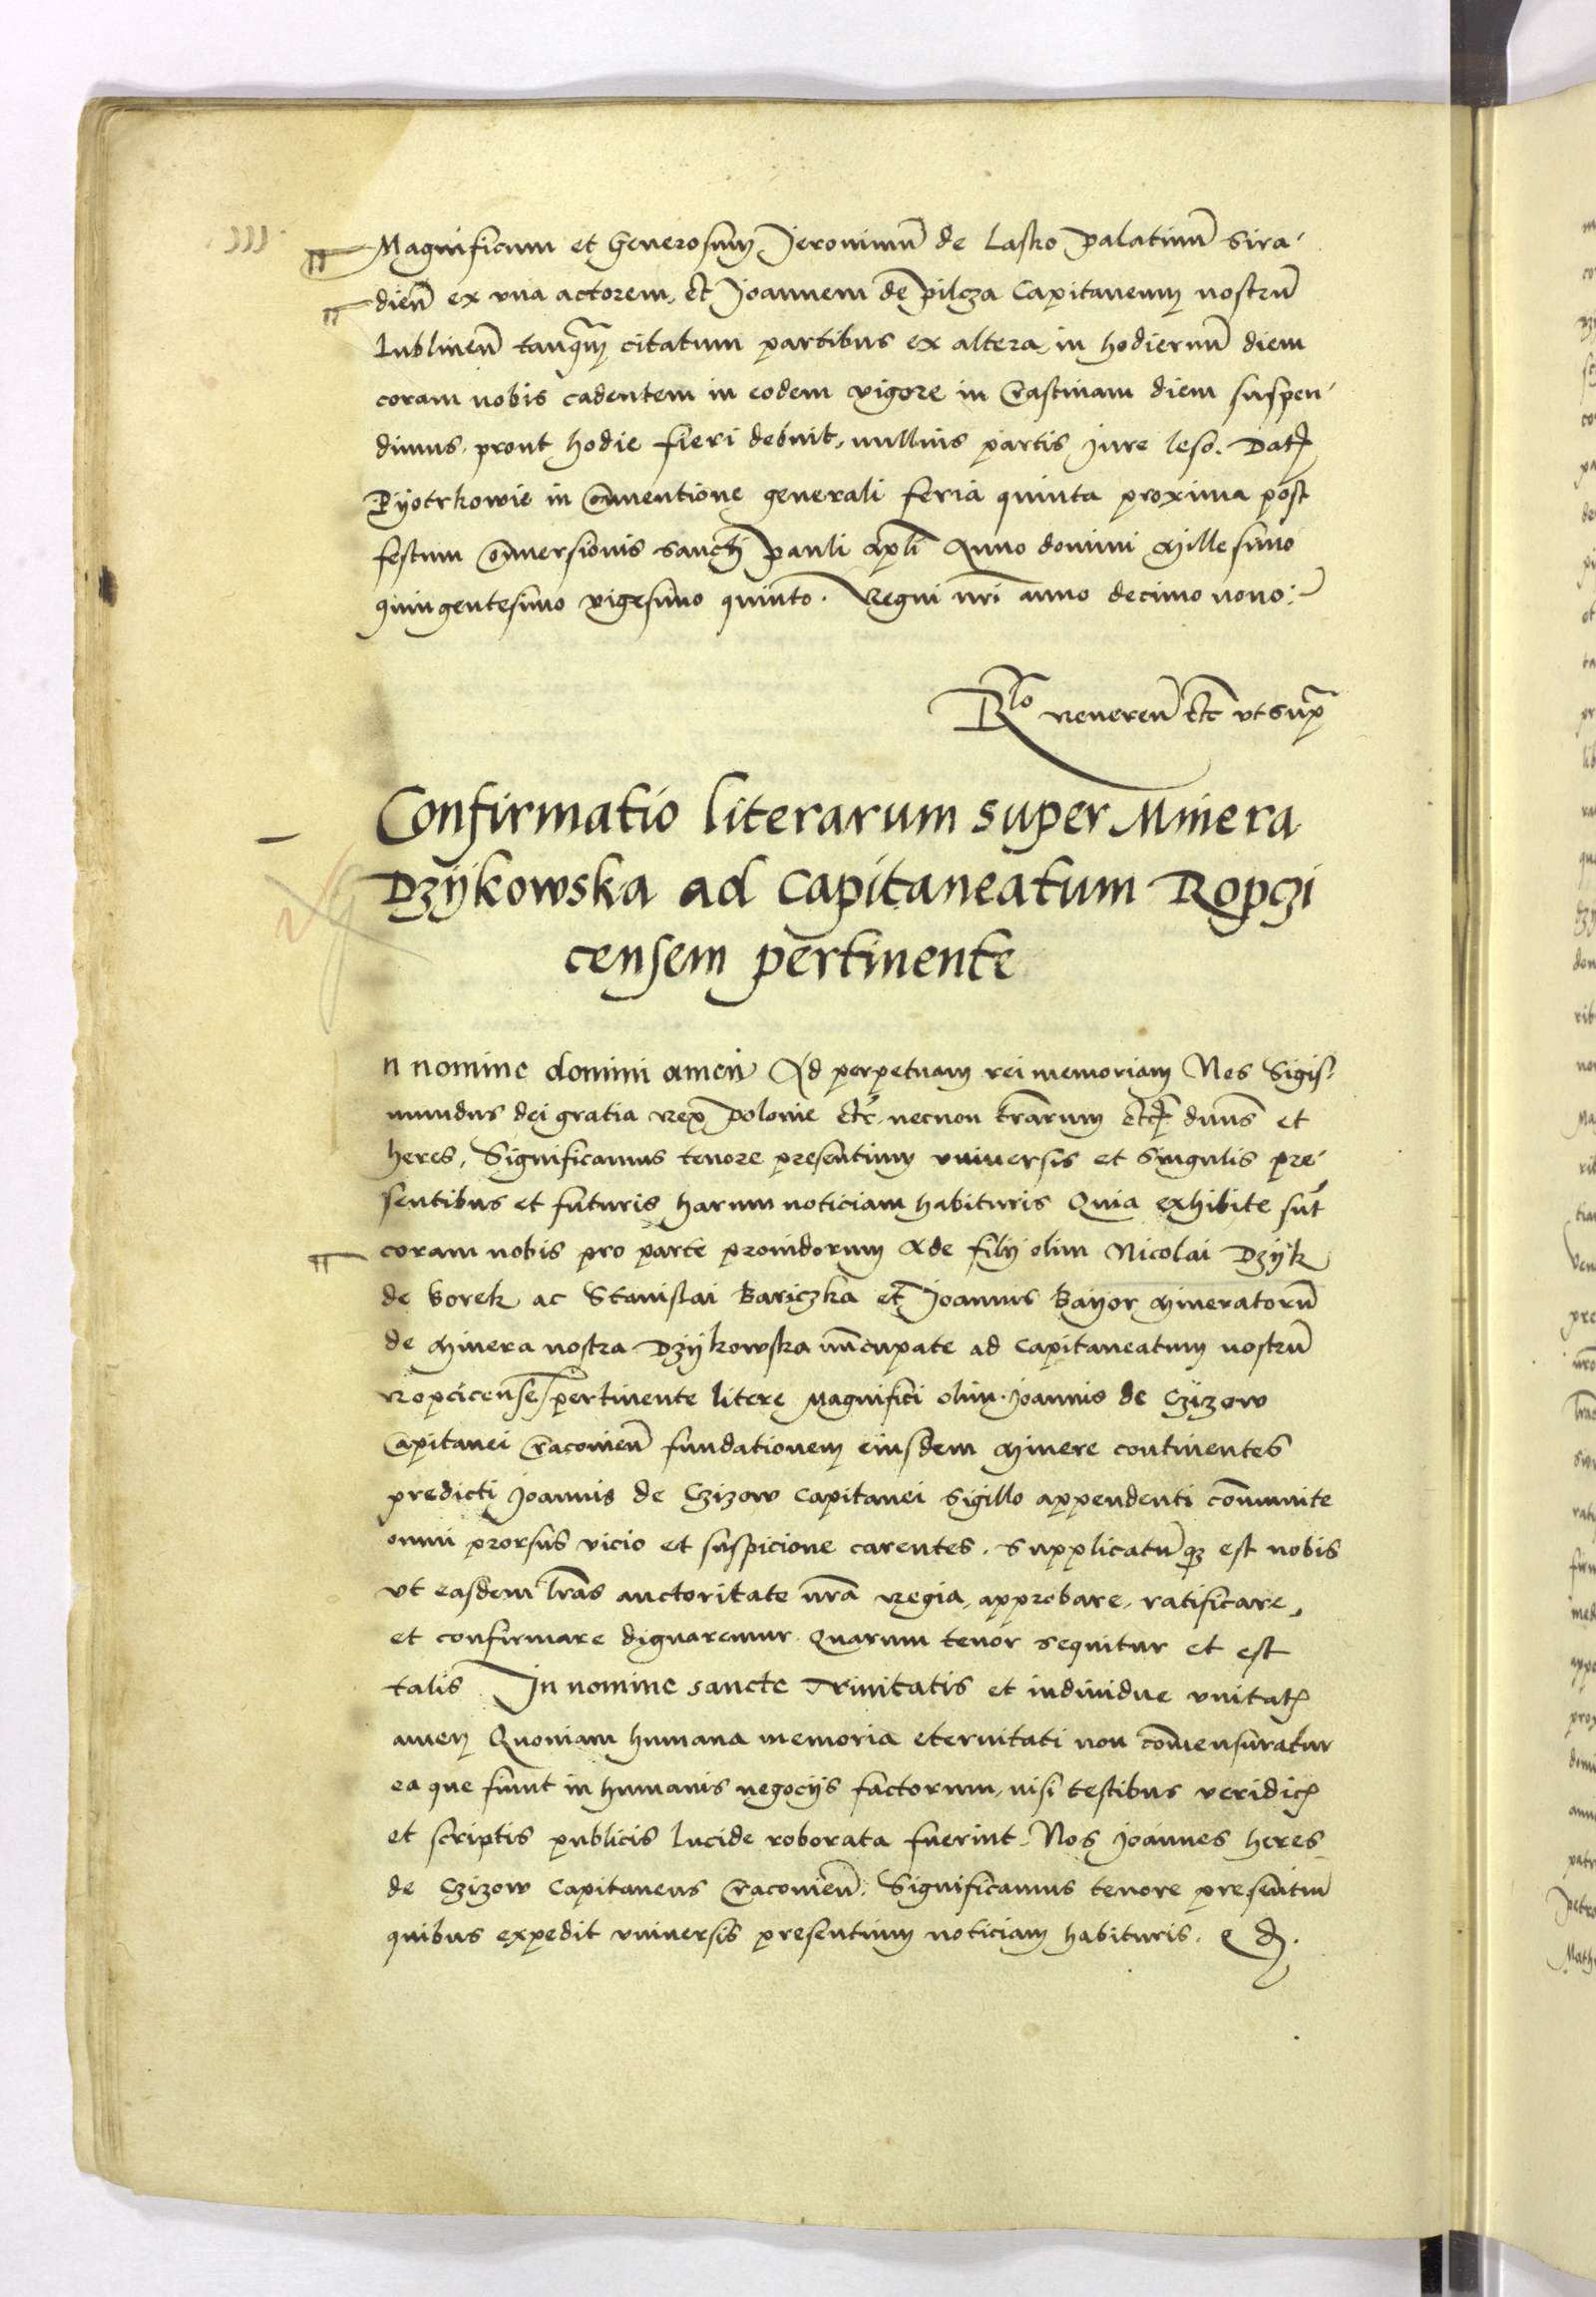 Magnificum et Generosum Jeronimū de Lasko Palatinū Sira-
dien̄ ex vna actorem, et Joannem de Pilcza Capitaneum nostrū
Lublinen̄ tanq̄m citatum partibus ex altera, in hodiernū diem
coram nobis cadentem in eodem vigore in Crastinam diem suspen-
dimus, prout hodie fieri debuit, nullius partis Jure leso. Datꝭ
Pÿotrkowie in Conuentione generali feria quinta proxima post
festum Conuersionis sancti Pauli apl̄i Anno domini Millesimo
quingentesimo vigesimo quinto. Regni nr̄i anno decimo nono:-
R̄lo reueren̄ etc̄ vt sup̄
Confirmatio literarum super Minera
Dzÿkowska ad Capitaneatum Ropczi
censem pertinente
n nomine domini amen Ad perpetuam rei memoriam Nos Sigis-
mundus dei gratia Rex Polonie etc̄, necnon tr̄arum etcꝭ dn̄us et
heres, Significamus tenore presentium vniuersis et singulis pre-
sentibus et futuris harum noticiam habituris Quia exhibite sūt
coram nobis pro parte prouidorum Ade filÿ olim Nicolai Dzÿk
de Borek ac Stanislai Bariczka et Joannis Baÿor Mineratorū
de Minera nostra Dzÿkowska nūcupate ad Capitaneatum nostrū
Ropcicense pertinente litere Magnifici olim Joannis de Czÿzow
Capitanei Cracouien̄ fundationem eiusdem Minere continentes
predicti Joannis de Czizow Capitanei Sigillo appendenti com̄unite
omni prorsus vicio et suspicione carentes. Supplicatū qꝫ est nobis
vt easdem lr̄as auctoritate nr̄a Regia, approbare, ratificare,
et confirmare dignaremur. Quarum tenor sequitur et est
talis In nomine sancte Trinitatis et indiuidue vnitatꝭ
amen Quoniam humana memoria eternitati non com̄ensuratur
ea que fiunt in humanis negocÿs factorum, nisi testibus veridicꝭ
et scriptis publicis lucide roborata fuerint. Nos Joannes heres
de Czizow Capitaneus Cracouien̄. Significamus tenore presentiū
quibus expedit vniuersis presentium noticiam habituris.